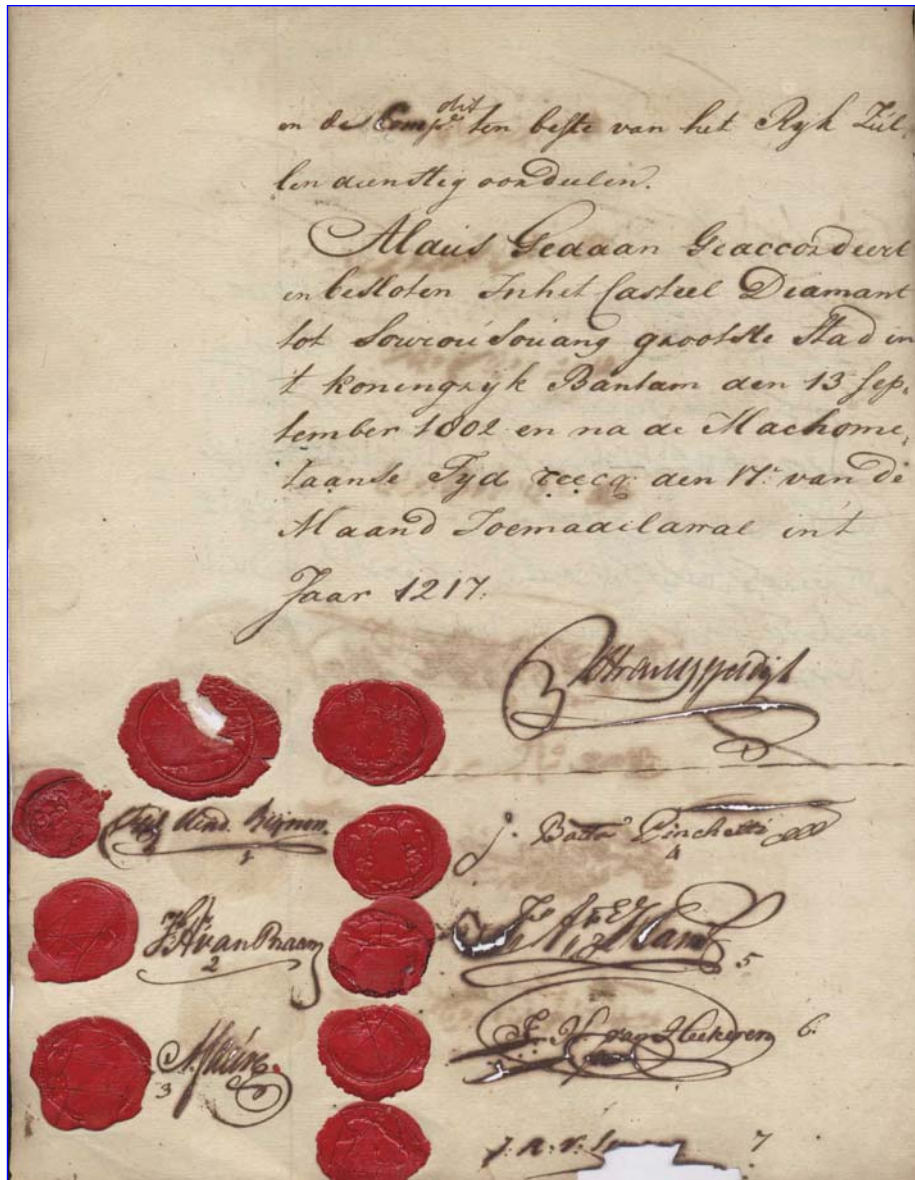 dit
en de Comp:e ten beste van het Ryk Zúl-
len dienstig oordeelen.
Aldús Gedaan Geaccordeert
en besloten In het Casteel Diamant
tot Sourousouang grootste Stad in
t koningryk Bantam den 13 Sep,
tember 1802 en na de Machome,
taanse Tyd den 17: van de
Maand Joemaadilawal in't
Jaar 1217.
Hend. Reijnen.
1
J. Batta Pinchetti
4
van Braam
2
5
van Heekeren
6.
3
J. R. V.
7